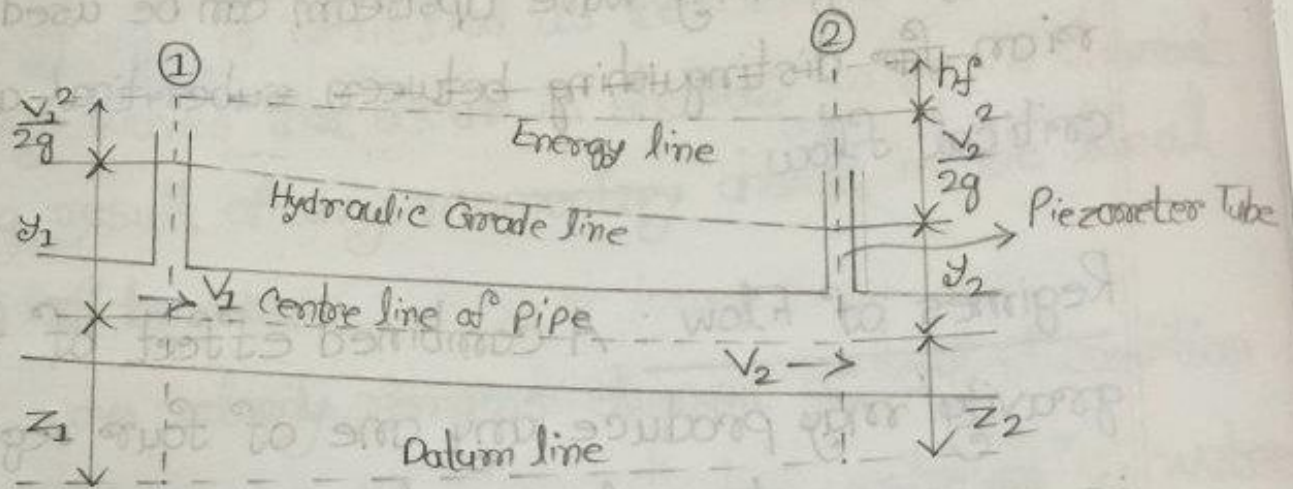 ① ②
V₁²/2g
hf
Energy line
V₂²/2g
Hydraulic Grade line
Piezometer Tube
y₁
y₂
V₁ Centre line of pipe
V₂
Z₁
Z₂
Datum line